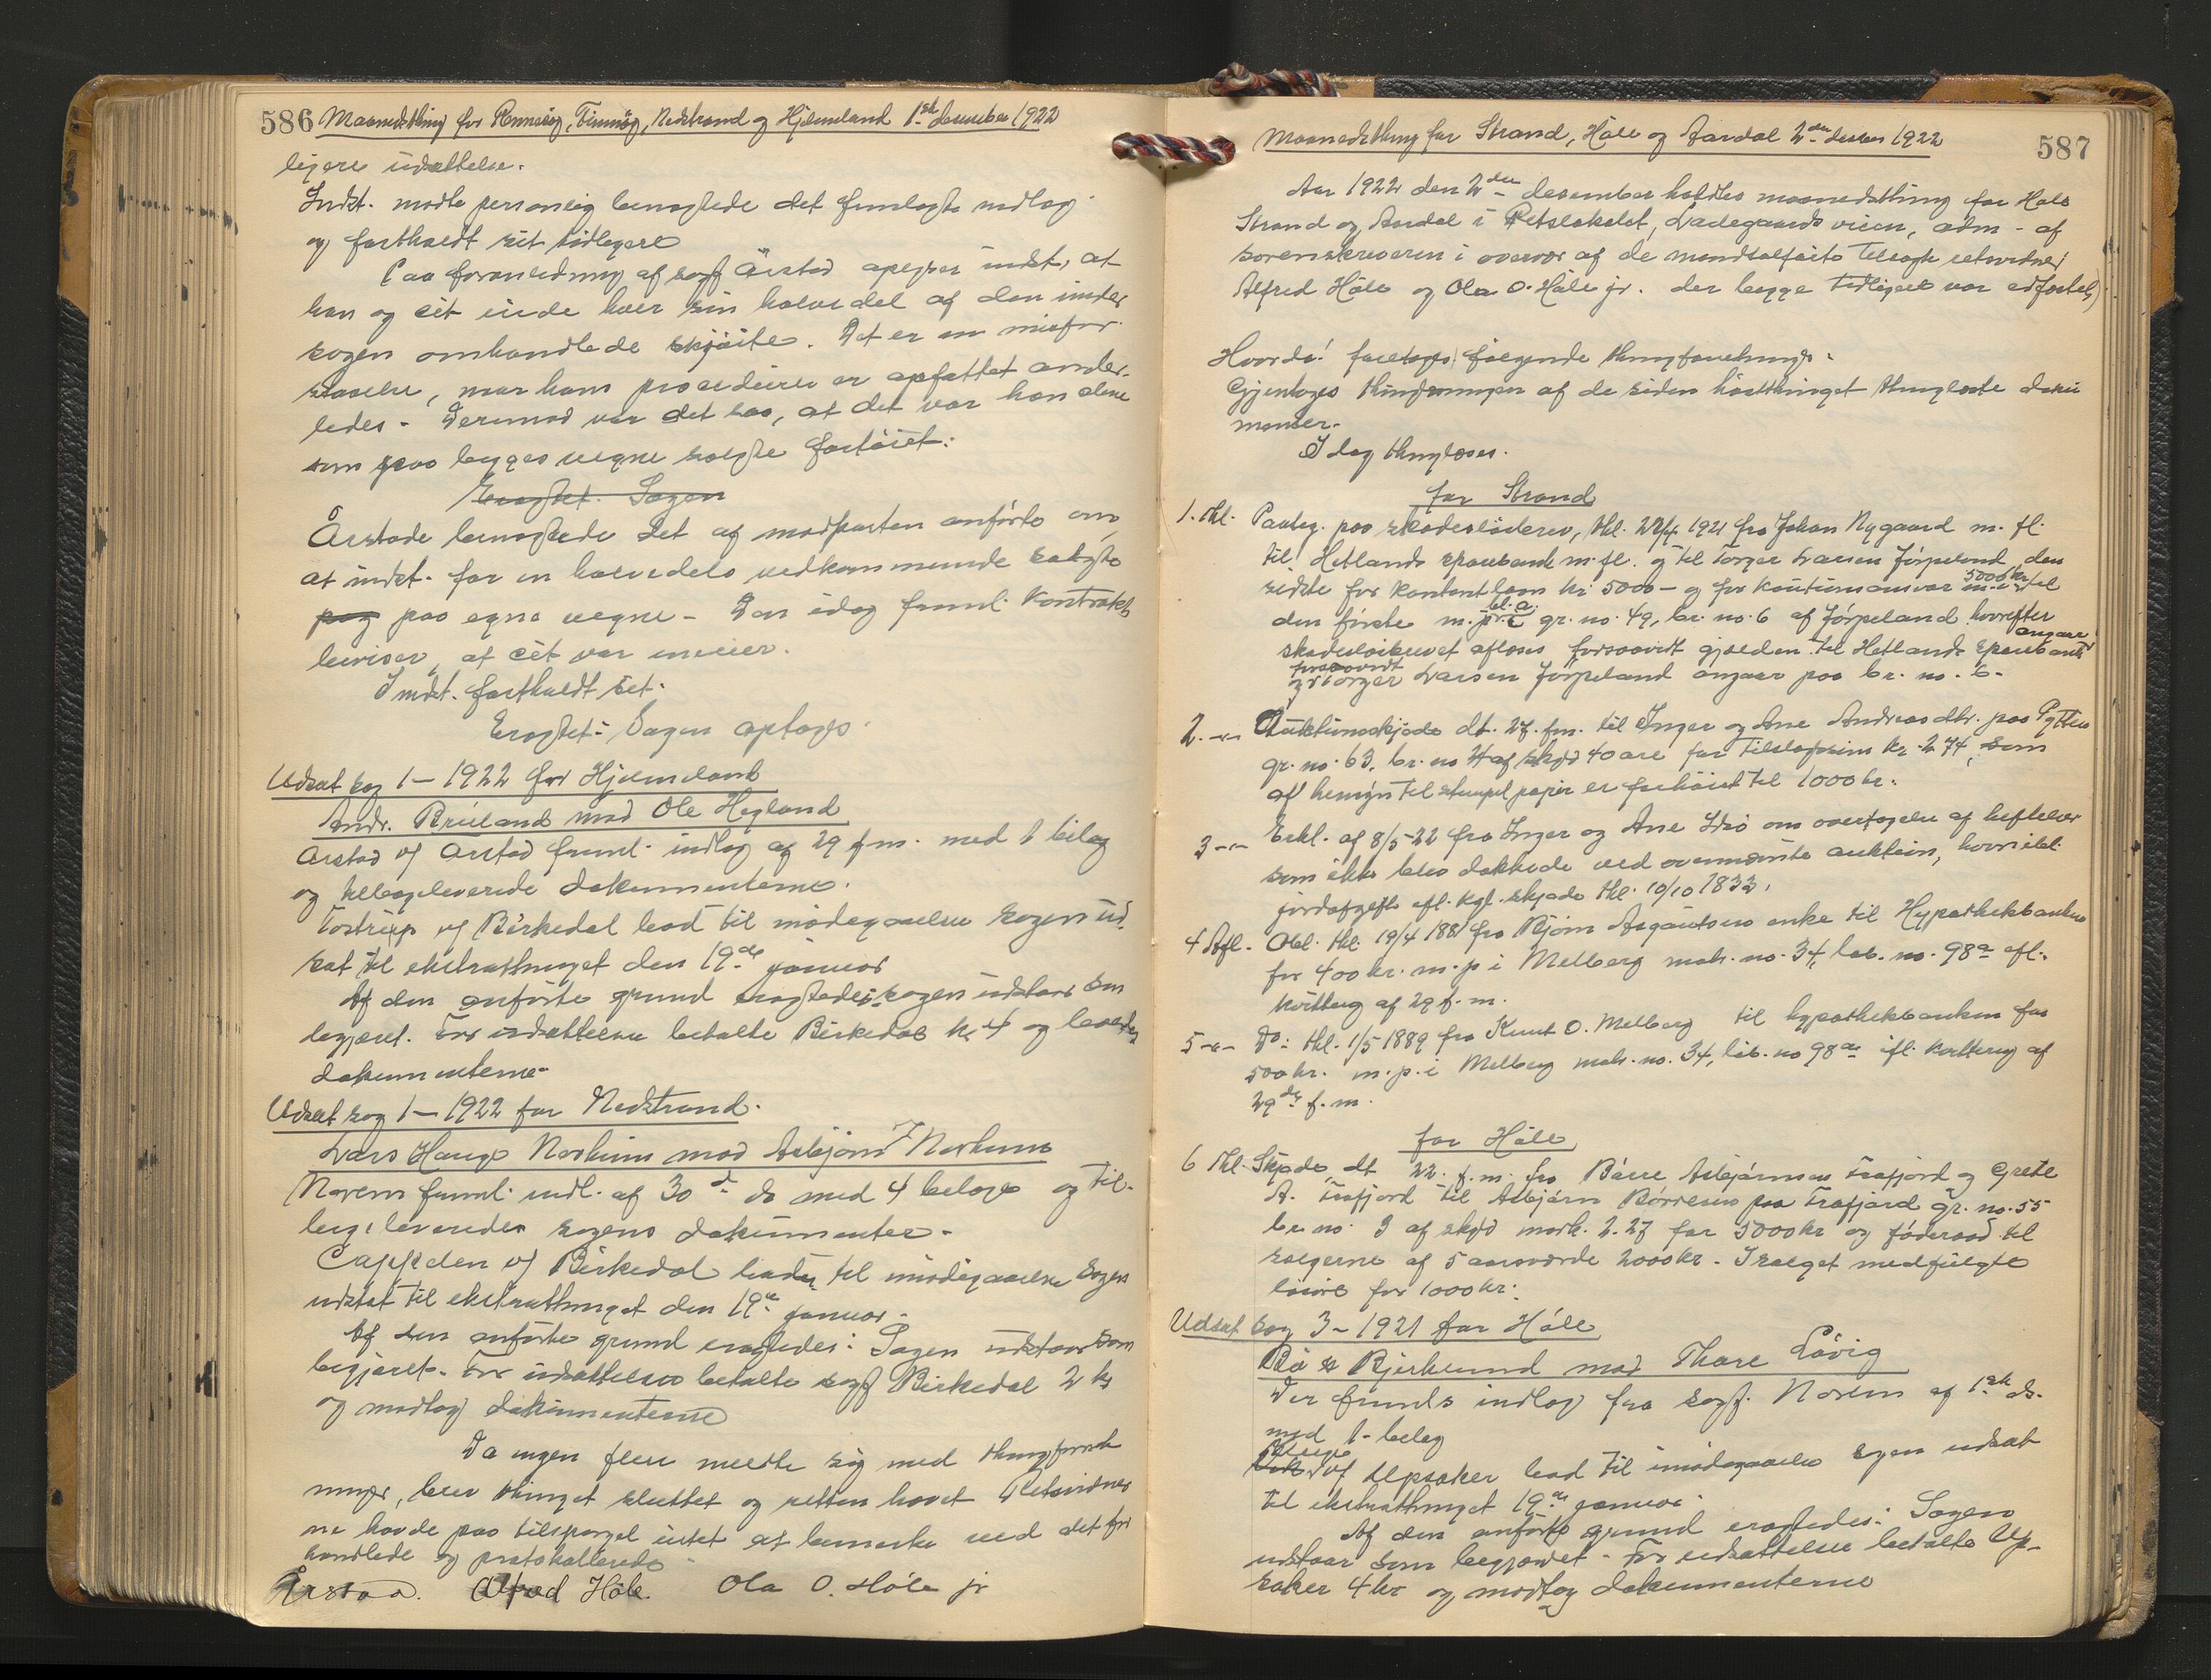 586 Maanedsthing for Rennesøy, Finnøy, Nedstrand og Hjelmeland 1ste desember 1922
ligere udsættelse.
Indst. mødte personlig benegtede det fremlagte indlæg
og fastholdt sit tidligere
Paa foranledning af sagf Årstad opgiver indst. at
han og cit. eiede hver sin halvedel af den under
sagen omhandlede skjøite. Det er en misfor-
staaelse, naar hans procedure er opfattet ander-
ledes. Derimod var det saa, at det var han alene
som paa begges vegne solgte fartøiet.
Eragtet. Sagen
Årstad benegtede det af modparten anførte om,
at indst. for en halvedels vedkommende solgte
paa egne vegne. Den idag freml. kontrakt
beviser, at cit var eneeier.
Indst. fastholdt sit.
Eragtet: Sagen optages.
Udsat sag 1-1922 for Hjelmeland
Andr. Brueland mod Ole Hegland
Årstad v/ Årstad freml. indlæg af 29 f.m. med 1 bilag
og tilbageleverede dokumenterne.
Tostrup v/ Birkedal bad til imødegaaelse sagen ud-
sat til ekstrathinget den 19de januar
Af den anførte grund eragtedes: sagen udstaar som
begjæret. For udsættelsen betalte Birkedal kr 4 og leveredes
dokumenterne
Udsat sag 1-1922 for Nedstrand.
Lars Hauge Nerheim mod Asbjørn J Nerheim
Norem freml. indl. af 30 d. ds med 4 bilage og til-
bageleveredes sagens dokumenter.
Cappelen v/ Birkedal bad til imødegaaelse sagen
udsat til ekstrathinget den 19de januar.
Af den anførte grund eragtedes: Sagen udstaar som
begjæret. For udsættelsen betalte sagf Birkedal 2 kr
og modtog dokumenterne
Da ingen flere meldte sig med thingforret-
ninger, blev thinget sluttet og retten hævet Retsvidner-
ne havde paa tilspørgsel intet at bemerke ved det for-
handlede og protokollerede
Årstad. Alfred Høle. Ola O. Høle jr
Maanedsthing for Strand, Høle og Aardal 2den desember 1922
587
Aar 1922 den 2den desember holdtes maanedsthing for Høle
Strand og Aardal i Retslokalet, Ladegaardsveien, adm. af
sorenskriveren i overvær af de mandtalførte tilsagte retsvidner
Alfred Høle og Ola O. Høle jr. der begge tidligere var edfæstet,
Hvorda! foretages følgende thingforretninger.
Gjentoges thinglysningen af de siden høstthinget thinglæste doku-
menter.
Idag thinglæses.
for Strand
1. thl. Paateg. paa skadesløsbrev, thl. 22/4 1921 fra Johan Nygaard m. fl.
til Hetlands sparebank m. fl. og til Torger Larsen Jørpeland, den
sidste for kontantlaan kr 5000 - og for kautionsansvar 5000 kr, til
den første m. p. i bl. a. gr. no. 49, br. no. 6 af Jørpeland hvorefter
skadesløsbrevet afløses forsaavidt gjælden til Hetlands Sparebank angaar
og forsaavidt Torger Larsen Jørpeland angaar paa br. no. 6.
2. -"- Auktionsskjøde dt. 27. f.m. til Inger og Ane Andreasdtr. paa
gr. no. 63, br. no 4 af skyld 40 øre for tilslagssum kr. 274, som
af hensyn til stempelpapir er forhøiet til 1000 kr.
3 -"- Erkl. af 8/5-22 fra Inger og Ane Idsø om overtagelse af heftelser
som ikke blev dækkede ved overnævnte auktion, hvoriblt.
jordafgift ifl. kgl. skjøde thl. 10/10 1833.
4 Afl. Obl. thl. 19/4 1881 fra Bjørn Asgautsens enke til Hypothekbanken
for 400 kr. m. p i Melberg matr. no. 34, løb. no. 98a ifl.
kvittering af 29 f. m.
5 -"- Do: thl. 1/5 1889 fra Knut O. Melberg til hypothekbanken for
500 kr. m. p. i Melberg matr. no. 34, løb. no 98a ifl. kvittering af
29de f. m.
for Høle
6 thl. Skjøde, dt 22. f.m. fra Børre Asbjørnsen Frafjord og Grete
A. Frafjord til Asbjørn Børresen paa Frafjord gr. no. 55
br no. 3 af skyld mark. 2.27 for 5000 kr og føderaad til
sælgerne af 5 aarsværde 2000 kr. I salget medfulgte
løsøre for 1000 kr.
Udsat sag 3-1921 for Høle
Bjerkreim mod Thore Løvig
Der freml. indlæg fra sagf. Norem af 1ste ds.
med 1 bilag
v/ Upsaker bad til imødegaaelse sagen udsat
til ekstrathinget 19de januar.
Af den anførte grund eragtedes: Sagen
udstaar som begjæret. For udsættelse betalte Up-
saker 4 kr og modtog dokumenterne